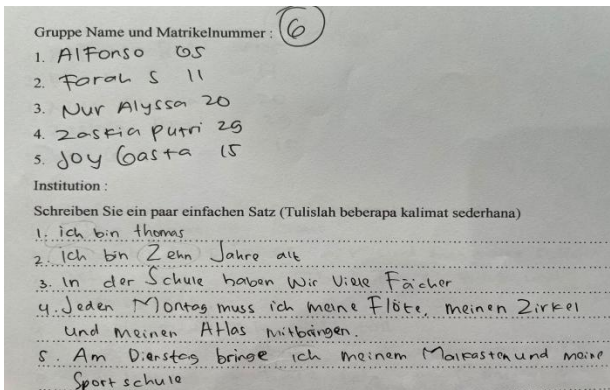 Gruppe Name und Matrikelnummer : 6
1. Alfonso 05
2. Farah S 11
3. Nur Alyssa 20
4. Zaskia Putri 29
5. Joy Gasta 15
Institution :
Schreiben Sie ein paar einfachen Satz (Tulislah beberapa kalimat sederhana)
1. ich bin thomas
2. Ich bin Zehn Jahre alt
3. In der Schule haben Wir Viele Fächer
4. Jeden Montag muss ich meine Flöte, meinen Zirkel
und meinen Atlas mitbringen.
5. Am Dierstag bringe ich meinem Malkasten und meine
Sport schule